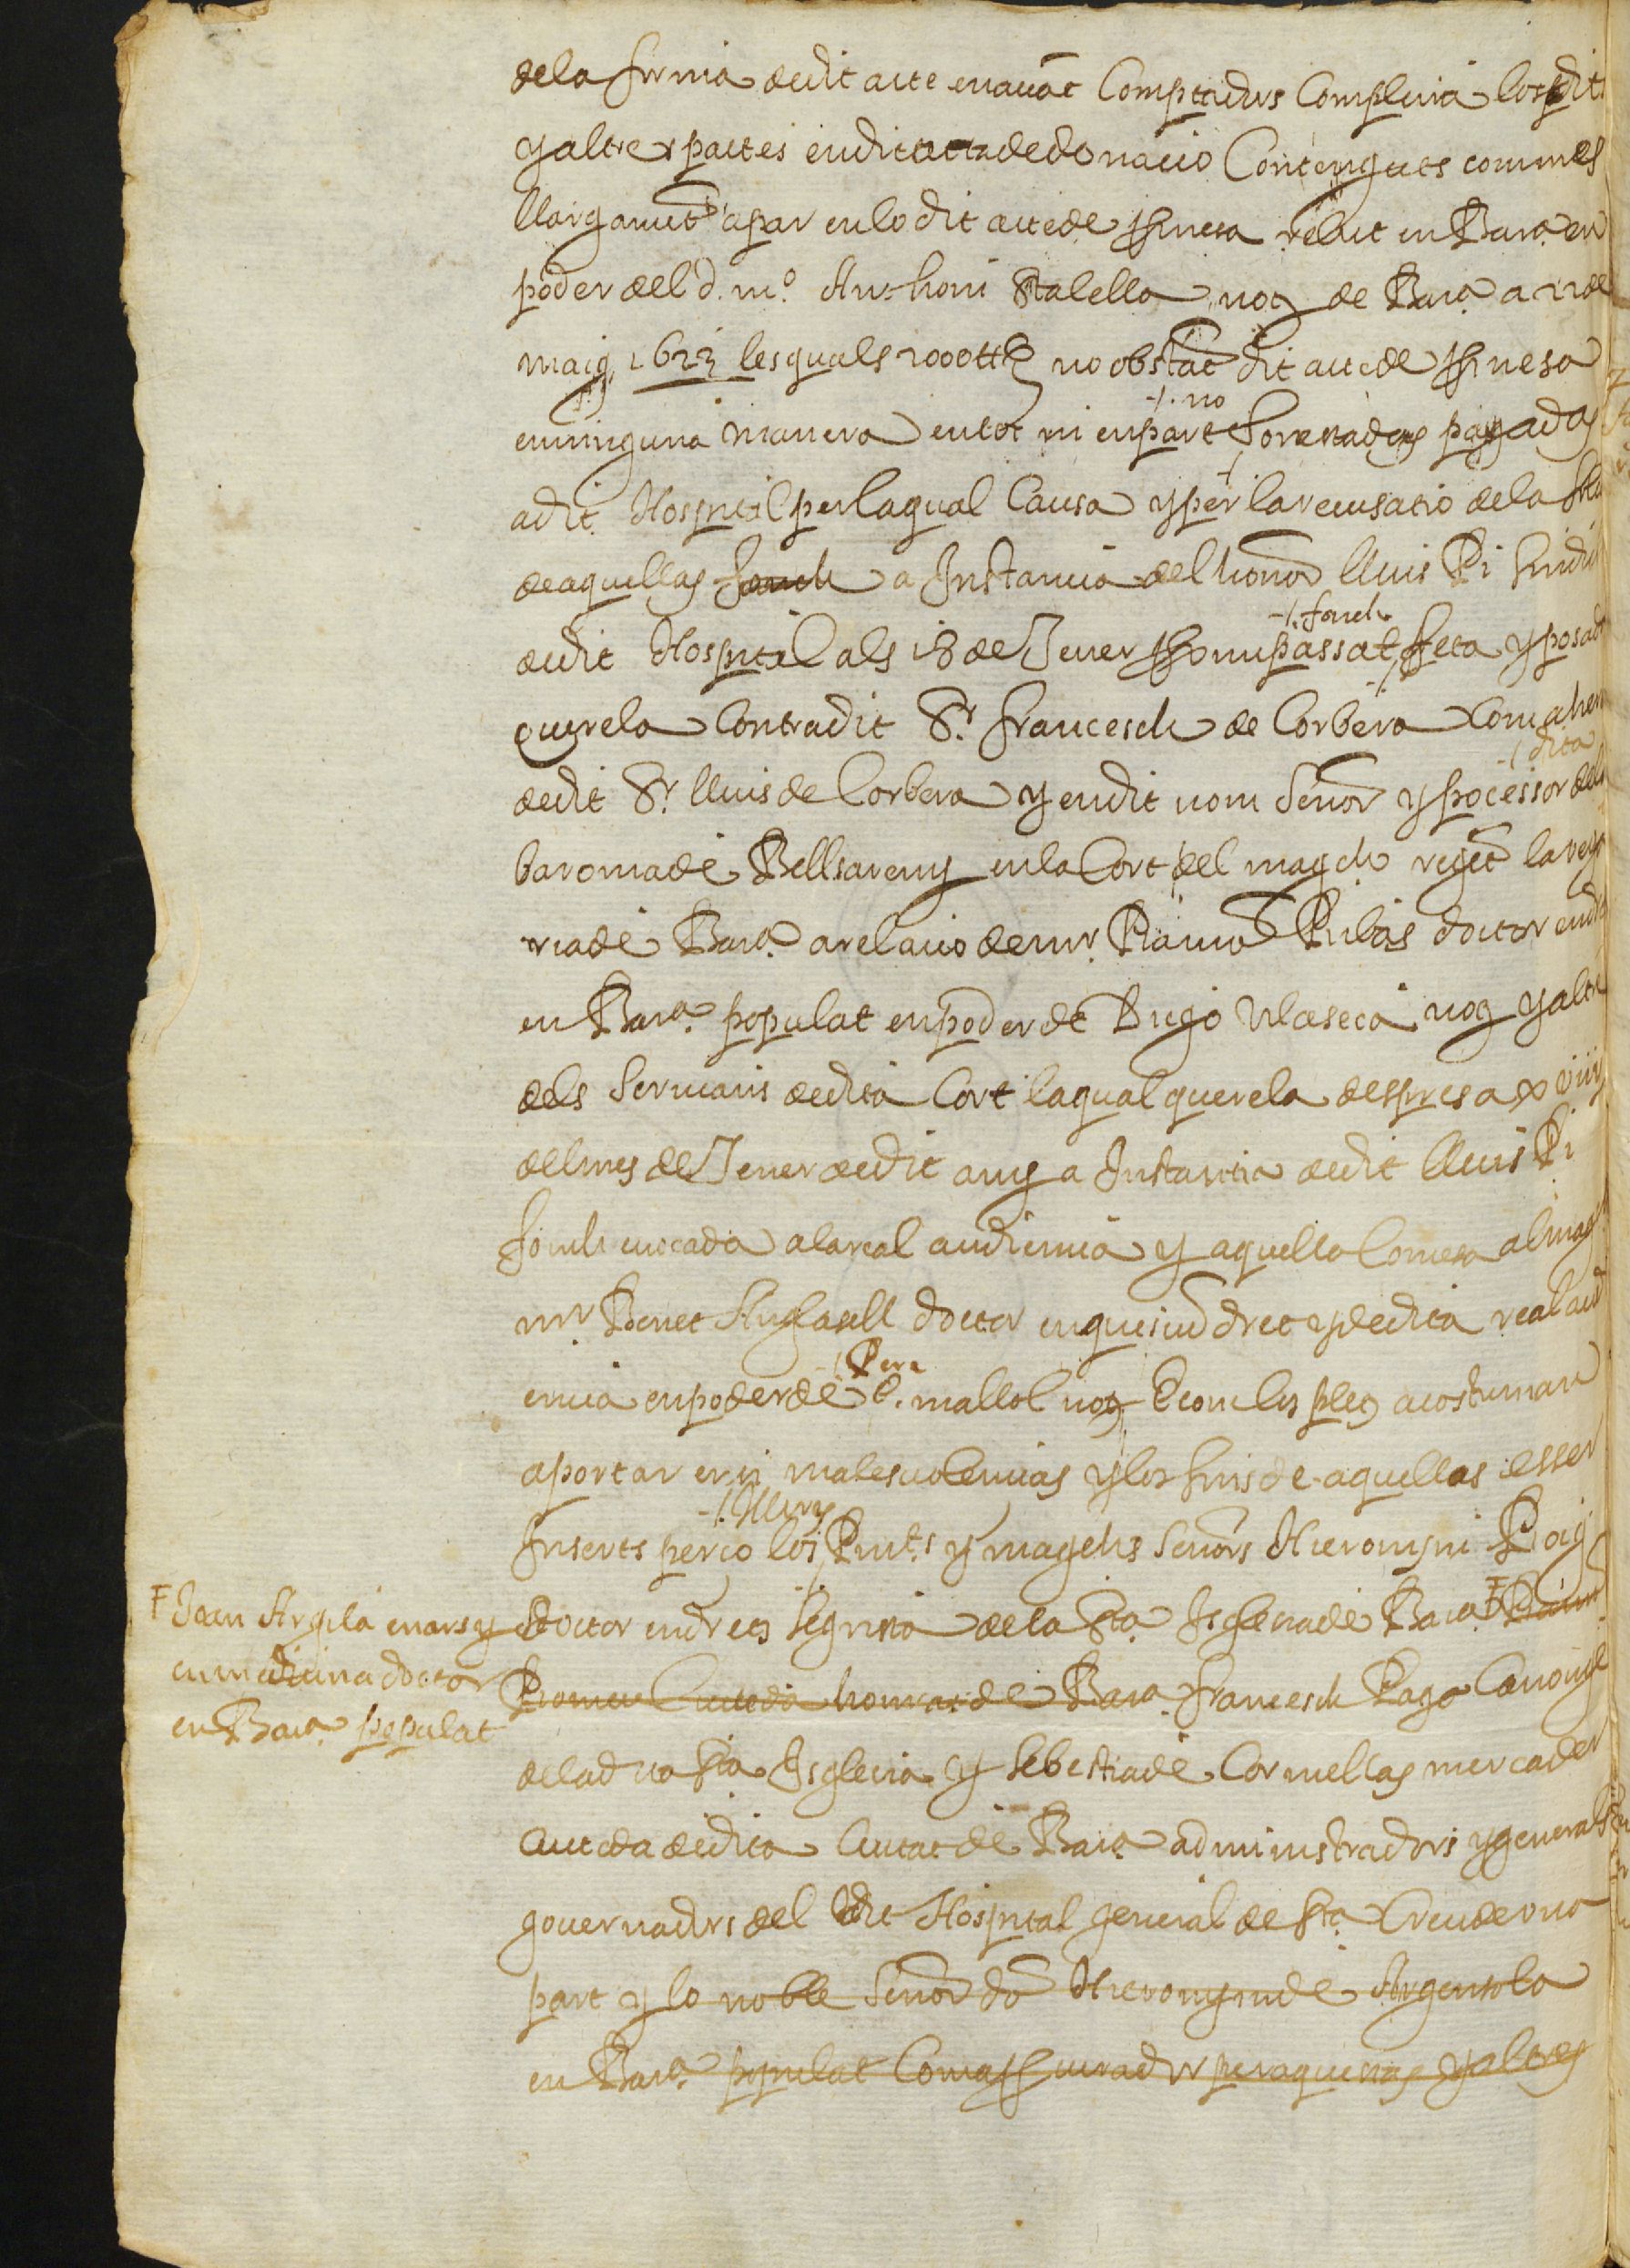 dela firma dedit acte enavāt Comptadors Compliria losdits
y altres pactes endit acta de donacio Contenguts commes
llargamēt apar en lo dit acte de fermesa rebut en Barᵃ en
poder del d. mº Anthoni Stalella noṭ de Barᵃ a 22 de
maig 1623 les quals 2000 ttȝ no obstāt dit acte de fermesa
en ninguna manera en tot ni en part -/. no foren stadas pagadas
a dit Hospital per la qual Causa y per la recusatio de la
de aquellas fonch a Instancia del honoᵣ lluis Pi sindic
dedit Hospital als 18 de Jener pᵒ passat -/. fonch feta y posada
querela Contra dit Sʳ francesch de Corbera Com a hereu
dedit Sʳ lluis de Corbera y en dit nom Señor y pocessor -/ dita dela
baronia de Bellsareny en la Cort del magch regēt la vega
ria de Barᵃ a relacio de mʳ Ramō Rubās doctor en drets
en Barᵃ populat en poder de Diego Vlaseca noṭ y altre
dels Scrivans dedita Cort la qual querela despres a xviiij
del mes de Jener dedit any a Instantia dedit lluis Pi
fonch evocada a la real audiencia y aquella Comesa al magch
mʳ Benet Anglasell doctor en quescū dret y dedita real audi
encia en poder de -/ Pera P. mallol noṭ E com les plets acostuman
aportar en si malesvolencias y los fins de aquellas esser
Inserts per ço los -/. Illers Rmts y magchs Señors Hieronym Roig
Doctor en drets Segrista de la Sta Isglesia de Barᵃ Ŧ
Romeu Ciutedà honrat de Barᵃ francesch Pago Canonge
dela dita Sta Isglesia y Sebestia de Cormellas mercader
Ciutedà dedita Ciutat de Barᵃ administradors y generals
governadors del dit Hospital general de Sta Creu de una
part y lo noble Señor dō Hieronym de Argensola
en Barᵃ populat Com a procurador per aquestas y altres
Ŧ Joan Argila en arts y
en medicina doctor
en Barᵃ populat